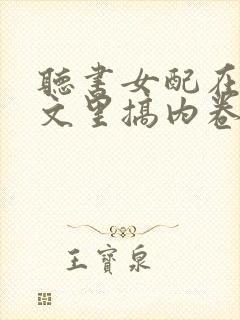 聽書女配在
文里搞内卷
王寶泉